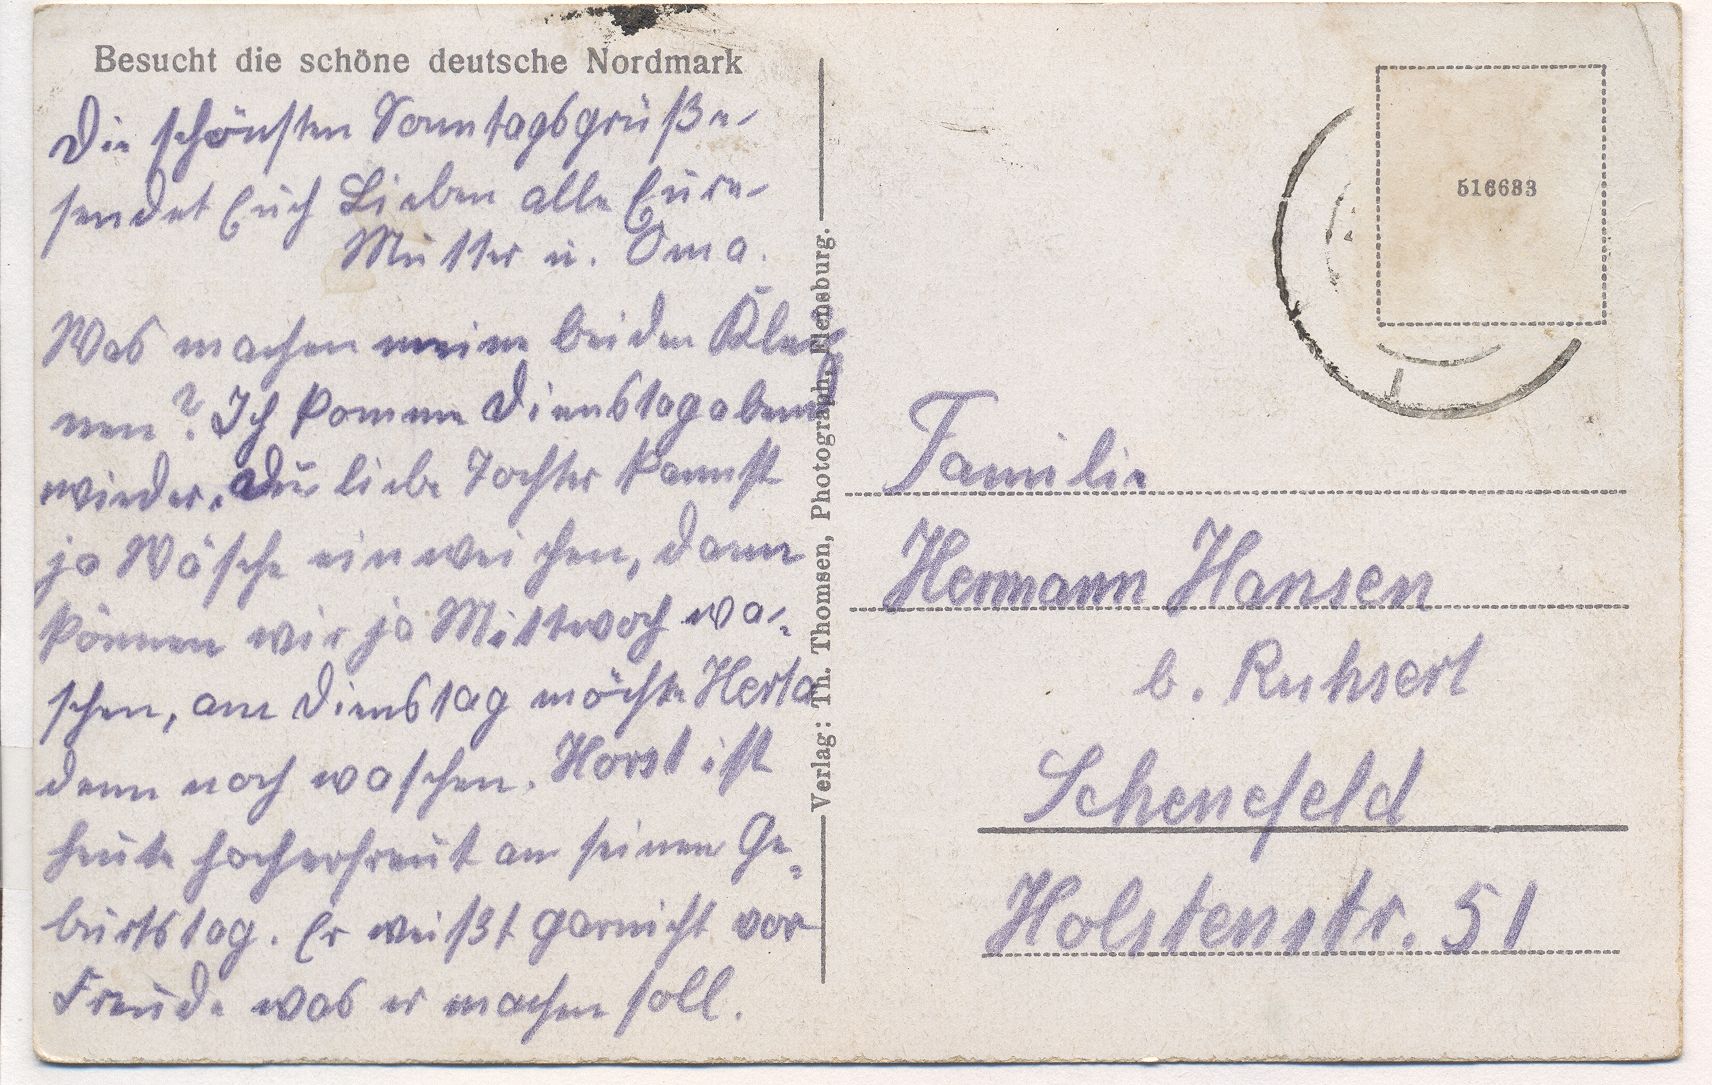 Besucht die schöne deutsche Nordmark
Die schönsten Sonntagsgrüße
sendet Euch Lieben alle Eure
Mutter u. Oma.
Was machen meine beiden Klei
nen? Ich komme Dienstagabend
wieder. Du liebe Tochter kannst
ja Wäsche einweichen, dann
können wir ja Mittwoch wa-
schen, am Dienstag möchte Herta
denn noch waschen. Horst ist
heute hocherfreut an seinen Ge-
burtstag. Er weißt garnicht vor
Freude was er machen soll.
Verlag: Th. Thomsen, Photograph, Flensburg.
516683
Familie
Hermann Hansen
b. Ruhsert
Schenefeld
Holstenstr. 51